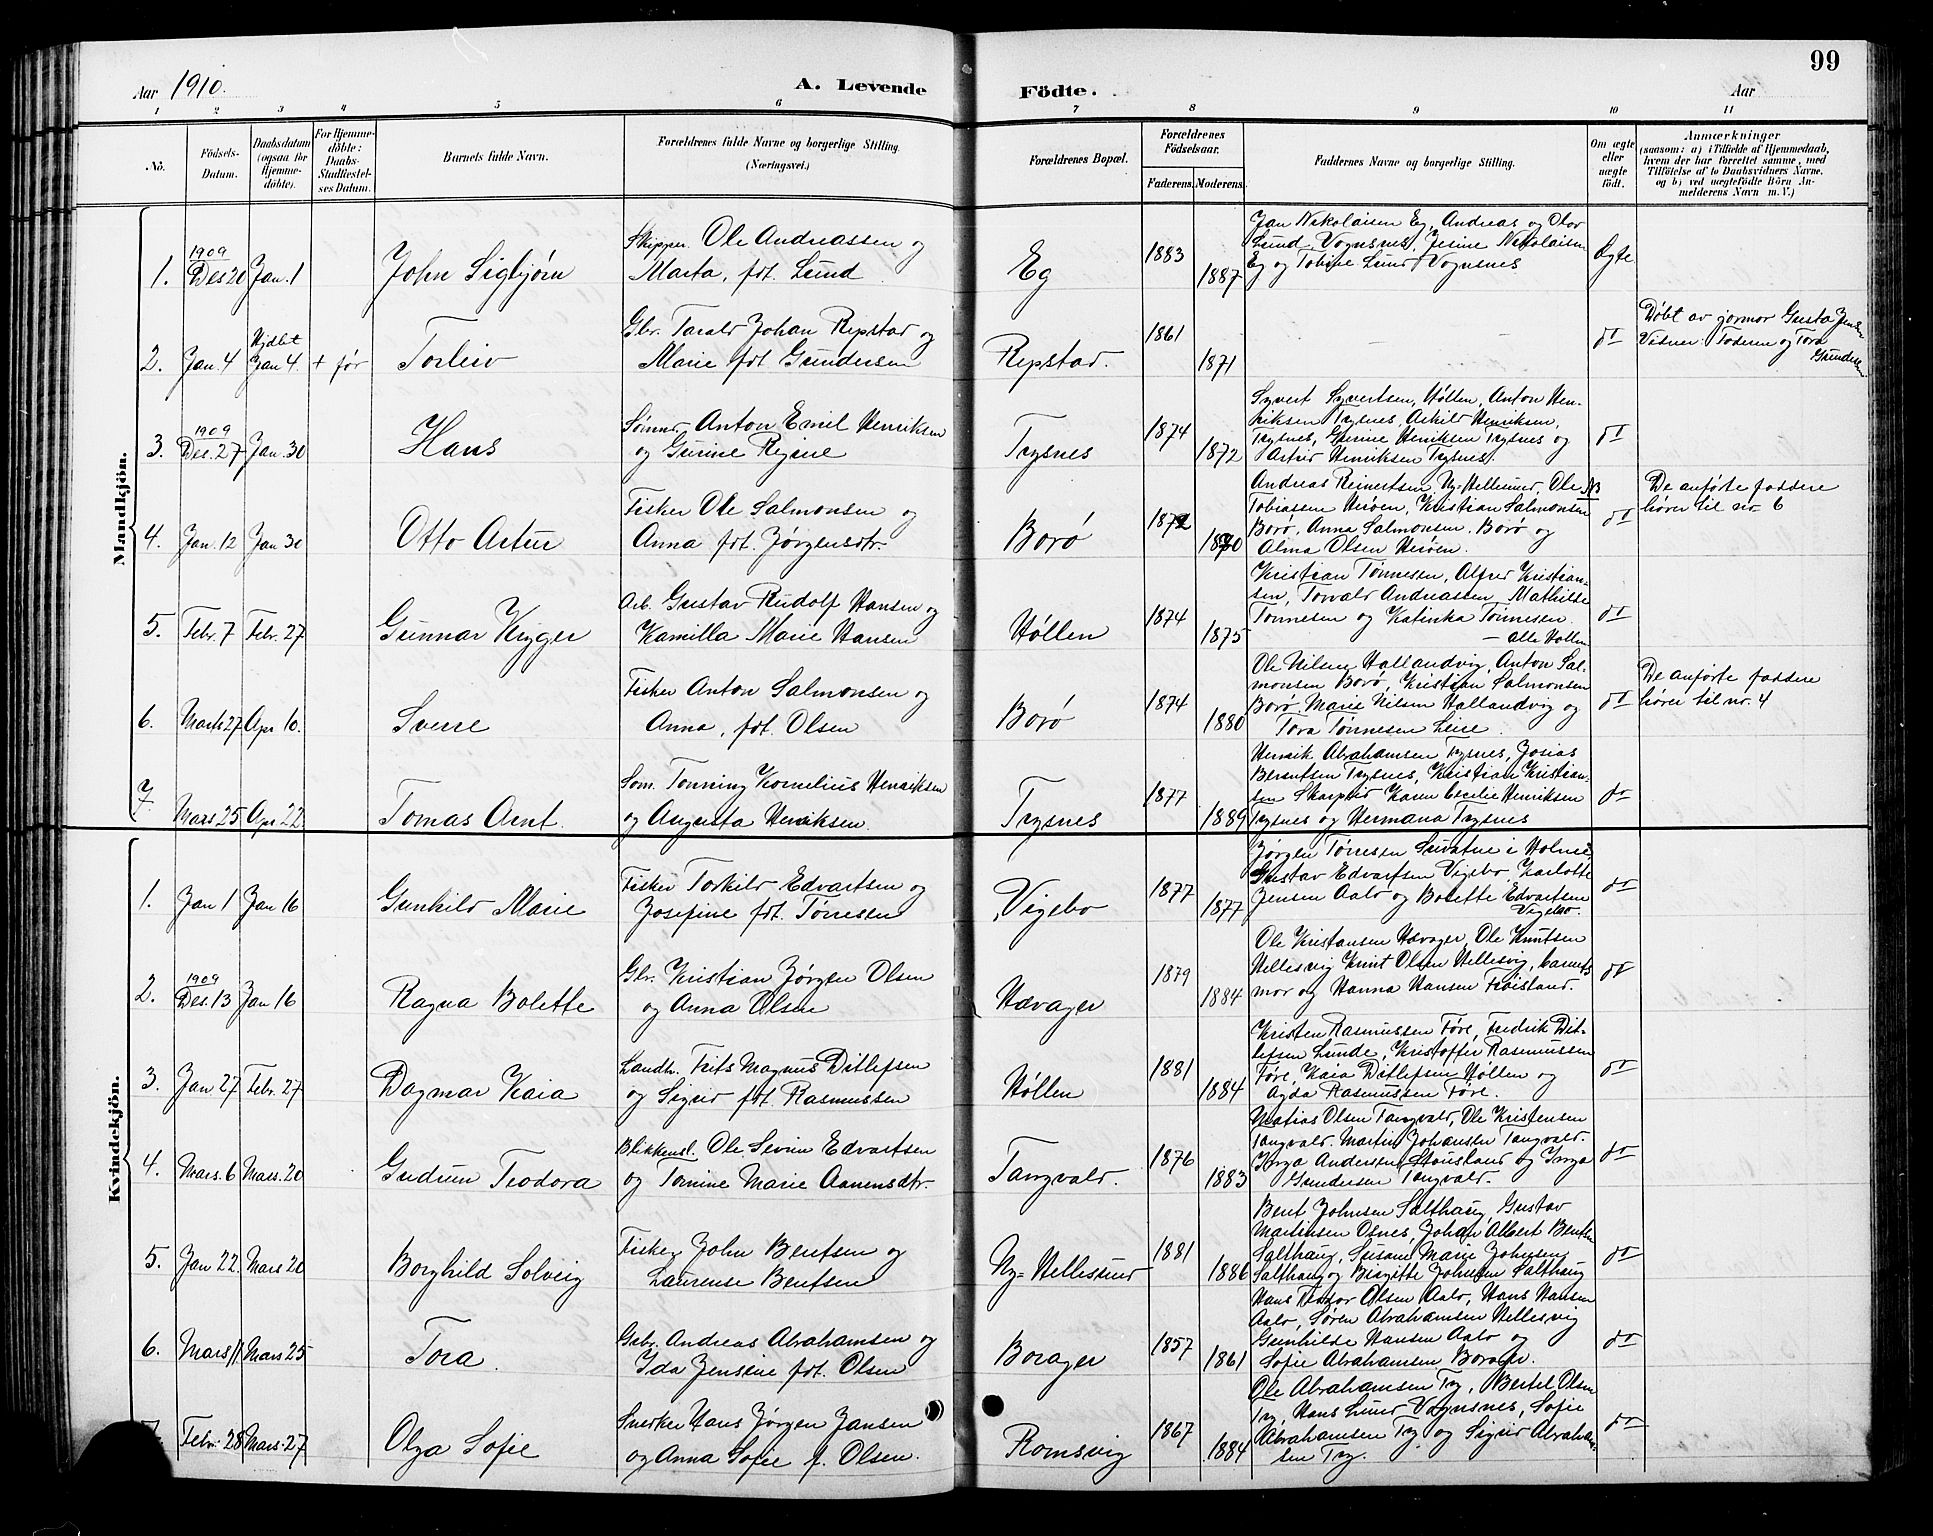 99
Aar 1910. A. Levende Födte. Aar
1 2 3 4 5 6 7 8 9 10 11
No. Födsels-Datum. Daabsdatum (ogsaa for Hjemmedöbte). For Hjemmedöbte: Daabs-Stadfæstelses Datum. Barnets fulde Navn. Forældrenes fulde Navne og borgerlige Stilling. (Næringsvei.) Forældrenes Bopæl. Forældrenes Födselsaar. Faderens. Moderens. Faddernes Navne og borgerlige Stilling. Om ægte eller uægte födt. Anmærkninger (saasom: a) i Tilfælde af Hjemmedaab, hvem der har forrettet samme, med Tilföielse af to Daabsvidners Navne, og b) ved uægtefödte Börn Anmelderens Navn m. V.)
Mandkjön.
1. 1909 Des 20 Jan. 1 John Sigbjørn Skipper. Ole Andreassen og Marta, fdt. Lund Eg 1883 1887 Jan Nikolaisen Eg, Andreas og Olav Lund, Vognsnes, Jesine Nikolaisen Eg og Tobine Lund Vognsnes Ægte
2. Jan. 4 Hjdbt Jan 4. + før Torleiv Gbr. Tarald Johan Repstad og Marie fdt Gundersen Repstad. 1861 1871 — — do Døbt av jormor Gusta Jensen Vidner: Faderen og Tora Gundersen
3. 1909 Des. 27 Jan. 30 Hans Sømnd. Anton Emil Henriksen og Gurine Regine Trysnes 1874 1872 Syvert Syvertsen, Høllen, Anton Henriksen Trysnes, Askild Henriksen, Trysnes, Gurine Henriksen Trysnes og Astrid Henriksen Trysnes. do
4. Jan. 12 Jan 30 Otto Artur Fisker Ole Salmonsen og Anna fdt. Jørgensdtr. Borø 1872 1870 Andreas Reinertsen, Ny-Hellesund, Ole Tobiassen Herøen, Kristian Salmonsen Borø, Anna Salmonsen. Borø og Alma Olsen Herøen. NB do De anførte faddere hører til nr. 6
5. Febr. 7 Febr. 27 Gunnar Kryger Arb. Gustav Rudolf Hansen og Kamilla Marie Hansen Høllen 1874 1875 Kristian Tønnesen, Alfred Kristiansen, Torvald Andreassen, Mathilde Tønnesen og Katinka Tønnesen. — alle Høllen do
6. Mars 27 Apr 10. Sverre Fisker Anton Salmonsen og Anna, fdt. Olsen Borø 1874 1880 Ole Nilsen Hallandvig, Anton Salmonsen Borø, Kristian Salmonsen Borø. Marie Nilsen Hallandvig og Tora Tønnesen do De anførte faddere hører til nr. 4
7. Mars 25 Apr 22 Tomas Arnt. Søm. Tønning Kornelius Henriksen og Augusta Henriksen. Trysnes 1877 1889 Henrik Abrahamsen Trysnes, Josias Berentsen Trysnes, Kristian Kristiansen Skarpeid Karen Cecilie Henriksen Trysnes og Hermana Trysnes do
Kvindekjön.
1. Jan 1 Jan 16 Gunhild Marie Fisker Torkild Edvartsen og Josefine fdt. Tørresen Vigebo 1877 1877 Jørgen Tørresen i Holme, Gustav Edvartsen Vigebo, Karlotte Jensen Aalo og Bolette Edvartsen Vigebo. do
2. 1909 Des. 13 Jan 16 Ragna Bolette Gbr. Kristian Jørgen Olsen og Anna Olsen Hævager 1879 1884 Ole Kristansen Hævager, Ole Knutsen Hellesvig Knut Olsen Hellesvig, barnets mor og Hanna Hansen Frøisland. do
3. Jan 27 Febr. 27 Dagmar Kaia Landh. Frits Magnus Ditlefsen og Sigrid fdt. Rasmussen Høllen 1881 1884 Kristen Rasmussen Føre, Fredrik Ditlefsen Lunde, Kristoffer Rasmussen Føre, Kaia Ditlefsen Høllen og Agda Rasmussen Føre. do
4. Mars. 6 Mars. 20 Gudrun Teodora Blikkensl. Ole Severin Edvartsen og Tomine Marie Aanensdtr. Tangvald. 1876 1883 Matias Olsen Tangvald, Ole Kristensen Tangvald. Martin Johansen Tangvald. Inga Andersen Stousland og Inga Gundersen Tangvald. do
5. Jan 22. Mars 20 Borghild Solveig Fisker John Bentsen og Laurense Bentsen Ny-Hellesund 1881 1886 Bent Johnsen Salthaug, Gustav Martinsen Osnes, Johan Albert Bentsen Salthaug, Susane Marie Johnsen Salthaug og Birgitte Johnsen Salthaug do
6. Mars 11 Mars 25 Tora. Gbr. Andreas Abrahamsen og Ida Jensine fdt. Olsen Borager 1857 1861 Hans Teodor Olsen Aalo, Hans Hansen Aalo, Søren Abrahamsen Hellesvig Gunhilde Hansen Aalo og Sofie Abrahamsen Borager. do
7. Febr. 28 Mars. 27 Olga Sofie Snerker Hans Jørgen Jansen og Anna Sofie f. Olsen. Romsvig 1867 1884 Ole Abrahamsen Try, Bertel Olsen Try, Hans Lund Vognsnes, Sofie Abrahamsen Try og Sigrid Abrahamsen Try. do